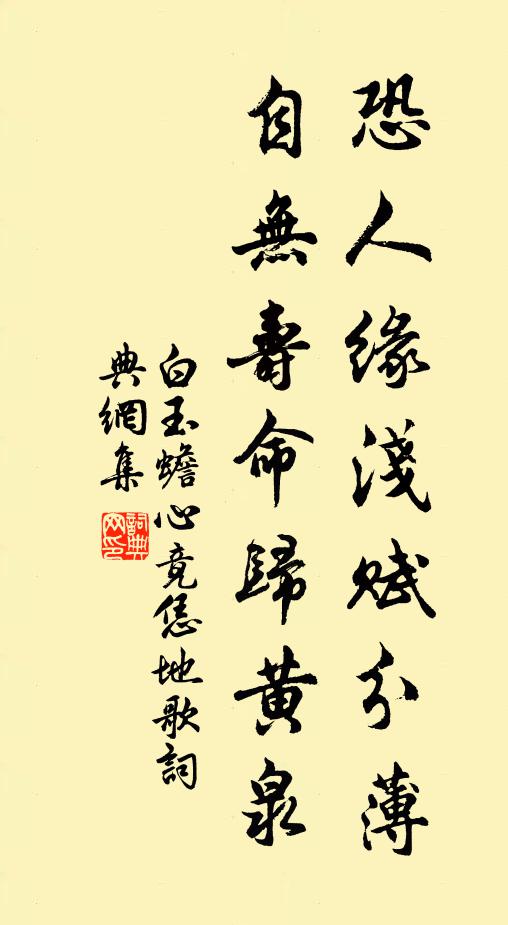 恐人緣淺賦分薄
自無壽命歸黃泉
白玉蟾心竟恁地歌詞
典網集
詞典
网印